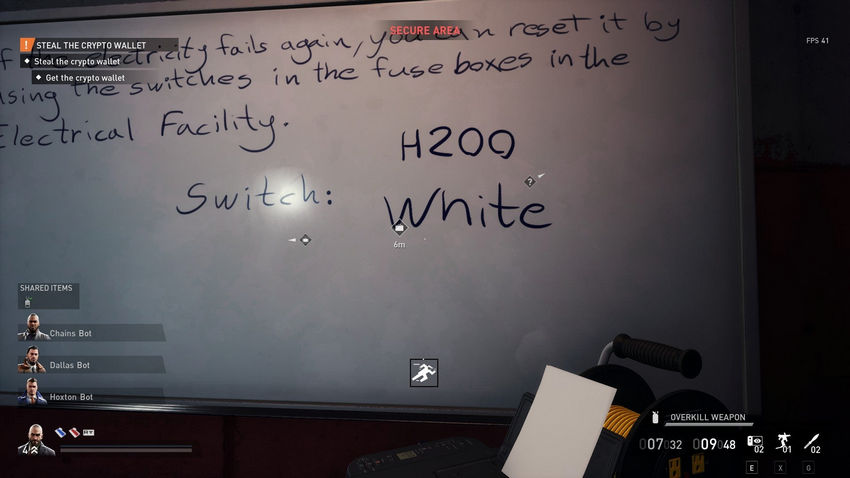 SECURE AREA
FPS 41
STEAL THE CRYPTO WALLET
Steal the crypto wallet
Get the crypto wallet
electricity fails again, you can reset it by
using the switches in the fuse boxes in the
Electrical Facility.
H200
Switch: White
6m
SHARED ITEMS
Chains Bot
Dallas Bot
Hoxton Bot
4
OVERKILL WEAPON
007032 009048 02 01 02
E X G